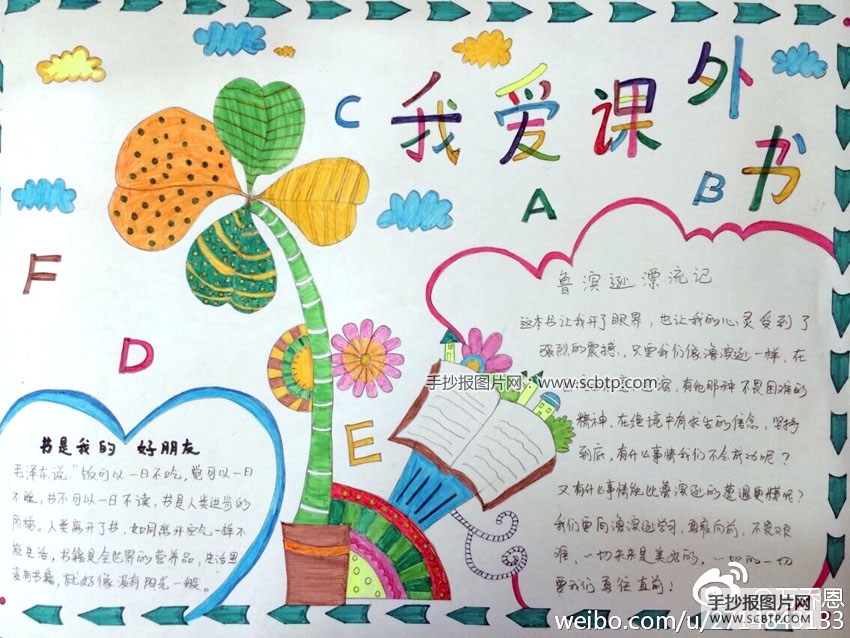 我爱课外书
C
A
B
F
D
E
鲁滨逊漂流记
这本书让我开了眼界，也让我的心灵受到了
强烈的震撼，只要我们像鲁滨逊一样，在
有他那种不畏困难的
精神，在绝境中有求生的信念，坚持
到底，有什么事情我们不会成功呢？
又有什么事情能比鲁滨逊的遭遇更惨呢？
我们要向鲁滨逊学习，勇敢向前，不畏艰
难，一切未来是美好的，一切的一切
要我们勇往直前！
书是我的 好朋友
毛泽东说："饭可以一日不吃，觉可以一日
不睡，书不可以一日不读，书是人类进步的
阶梯。人类离开了书，如同离开空气一样不
能生活，书籍是全世界的营养品，生活里
没有书籍，就好像没有阳光一般。"
手抄报图片网：www.scbtp.com
手抄报图片网
WWW.SCBTP.COM
乔恩
weibo.com/u/
133